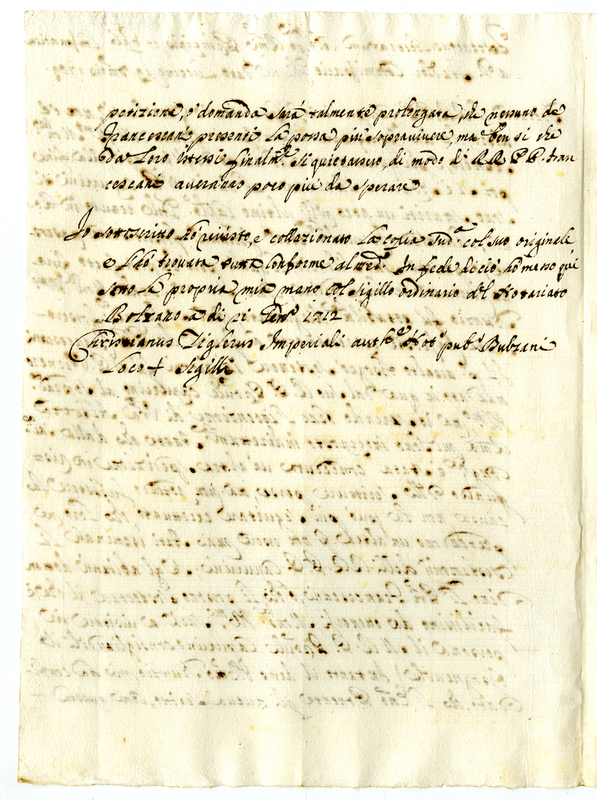 petizione, e domanda sarà talmente prolongata, che nessuno de
Francescani presenti la possa più sopravivere, ma ben si che
da loro stessi finalm.e si quietaranno, di modo che RR. PP. Fran
cescani averanno poco più da sperare
Io sottoscritto hò rivisto, e collazionato la copia sud.a col suo originale
e l'hò trovata tutta conforme al med.o In fede di ciò hò messo qui
sotto la propria mia mano col sigillo ordinario del Notariato
Bolzano a di 21 Gen.o 1712
Christianus Ziglerus Imperiali auth.e Not.s pub.s Bulzani
Loco + Sigilli